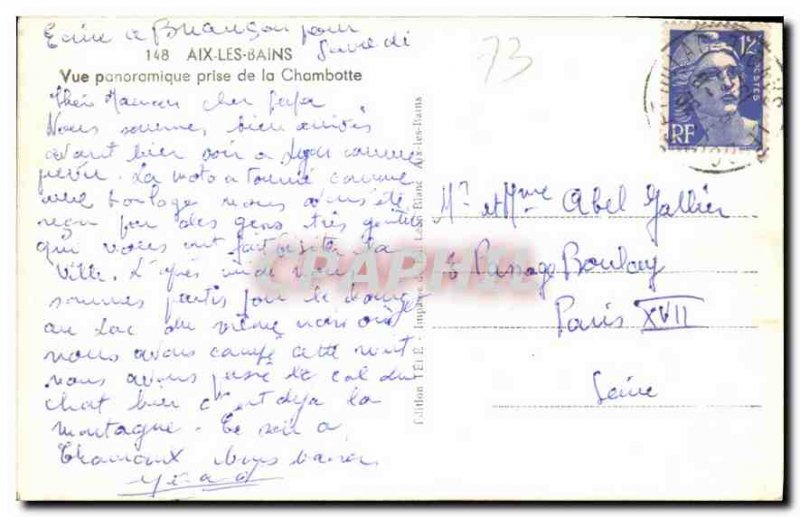 Ecrire a Briançon pour
Samedi
148 AIX-LES-BAINS
Vue panoramique prise de la Chambotte
73
12F
POSTES
RF
Chère Maman cher papa
Nous sommes bien arrivés
avant hier soir a Lyon comme
prévu. La moto a tourné comme
une horloge nous avons été
reçu par des gens très gentils
qui nous ont fait visité la
ville. L'après midi nous
sommes partis pour le
au Lac du même nom où
nous avons campé cette nuit
nous avons passé le col du
chat hier c'est déja la
montagne. Ce soir a
Gérard
Mr et Mme Abel Gallier
6 Passage Boulay
Paris XVII
Seine
Edition TÉLÉ. - Aix-les-Bains
CPAPHIL